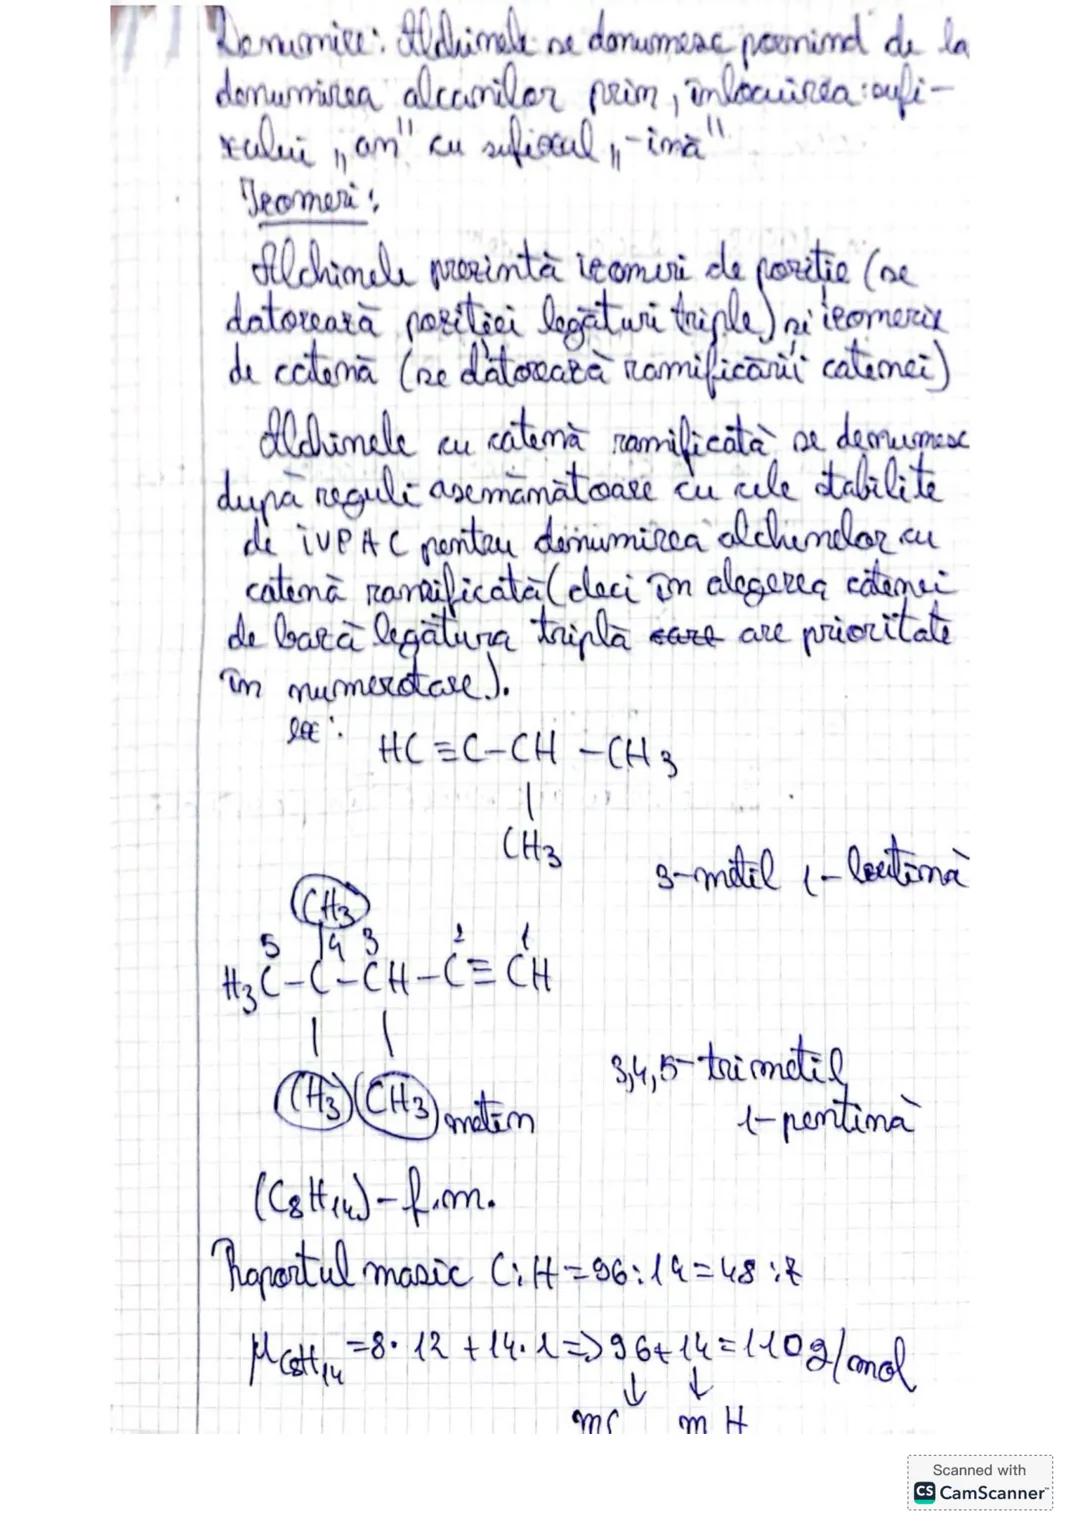 Denumire: Alchinele se denumesc pornind de la
denumirea alcanilor prin, înlocuirea sufi-
xului „an" cu sufixul „-ină"
Izomeri:
Alchinele prezintă izomeri de poziție (se
datorează poziției legături triple) și izomerie
de catenă (se datorează ramificării catenei)
Alchinele cu catenă ramificată se denumesc
după reguli asemănătoare cu cele stabilite
de IUPAC pentru denumirea alchenelor cu
catenă ramificată (deci în alegerea catenei
de bază legătura triplă care are prioritate
în numerotare).
ex:
HC≡C-CH-CH3
|
CH3
3-metil 1-butină
CH3
5 4 3 2 1
H3C-C-CH-C≡CH
| |
CH3 CH3
3,4,5-trimetil
1-pentină
(C8H14)-f.m.
Raportul masic C:H=96:14=48:7
μC8H14=8·12+14·1=>96+14=110g/mol
↓ ↓
mC m H
Scanned with
CS CamScanner